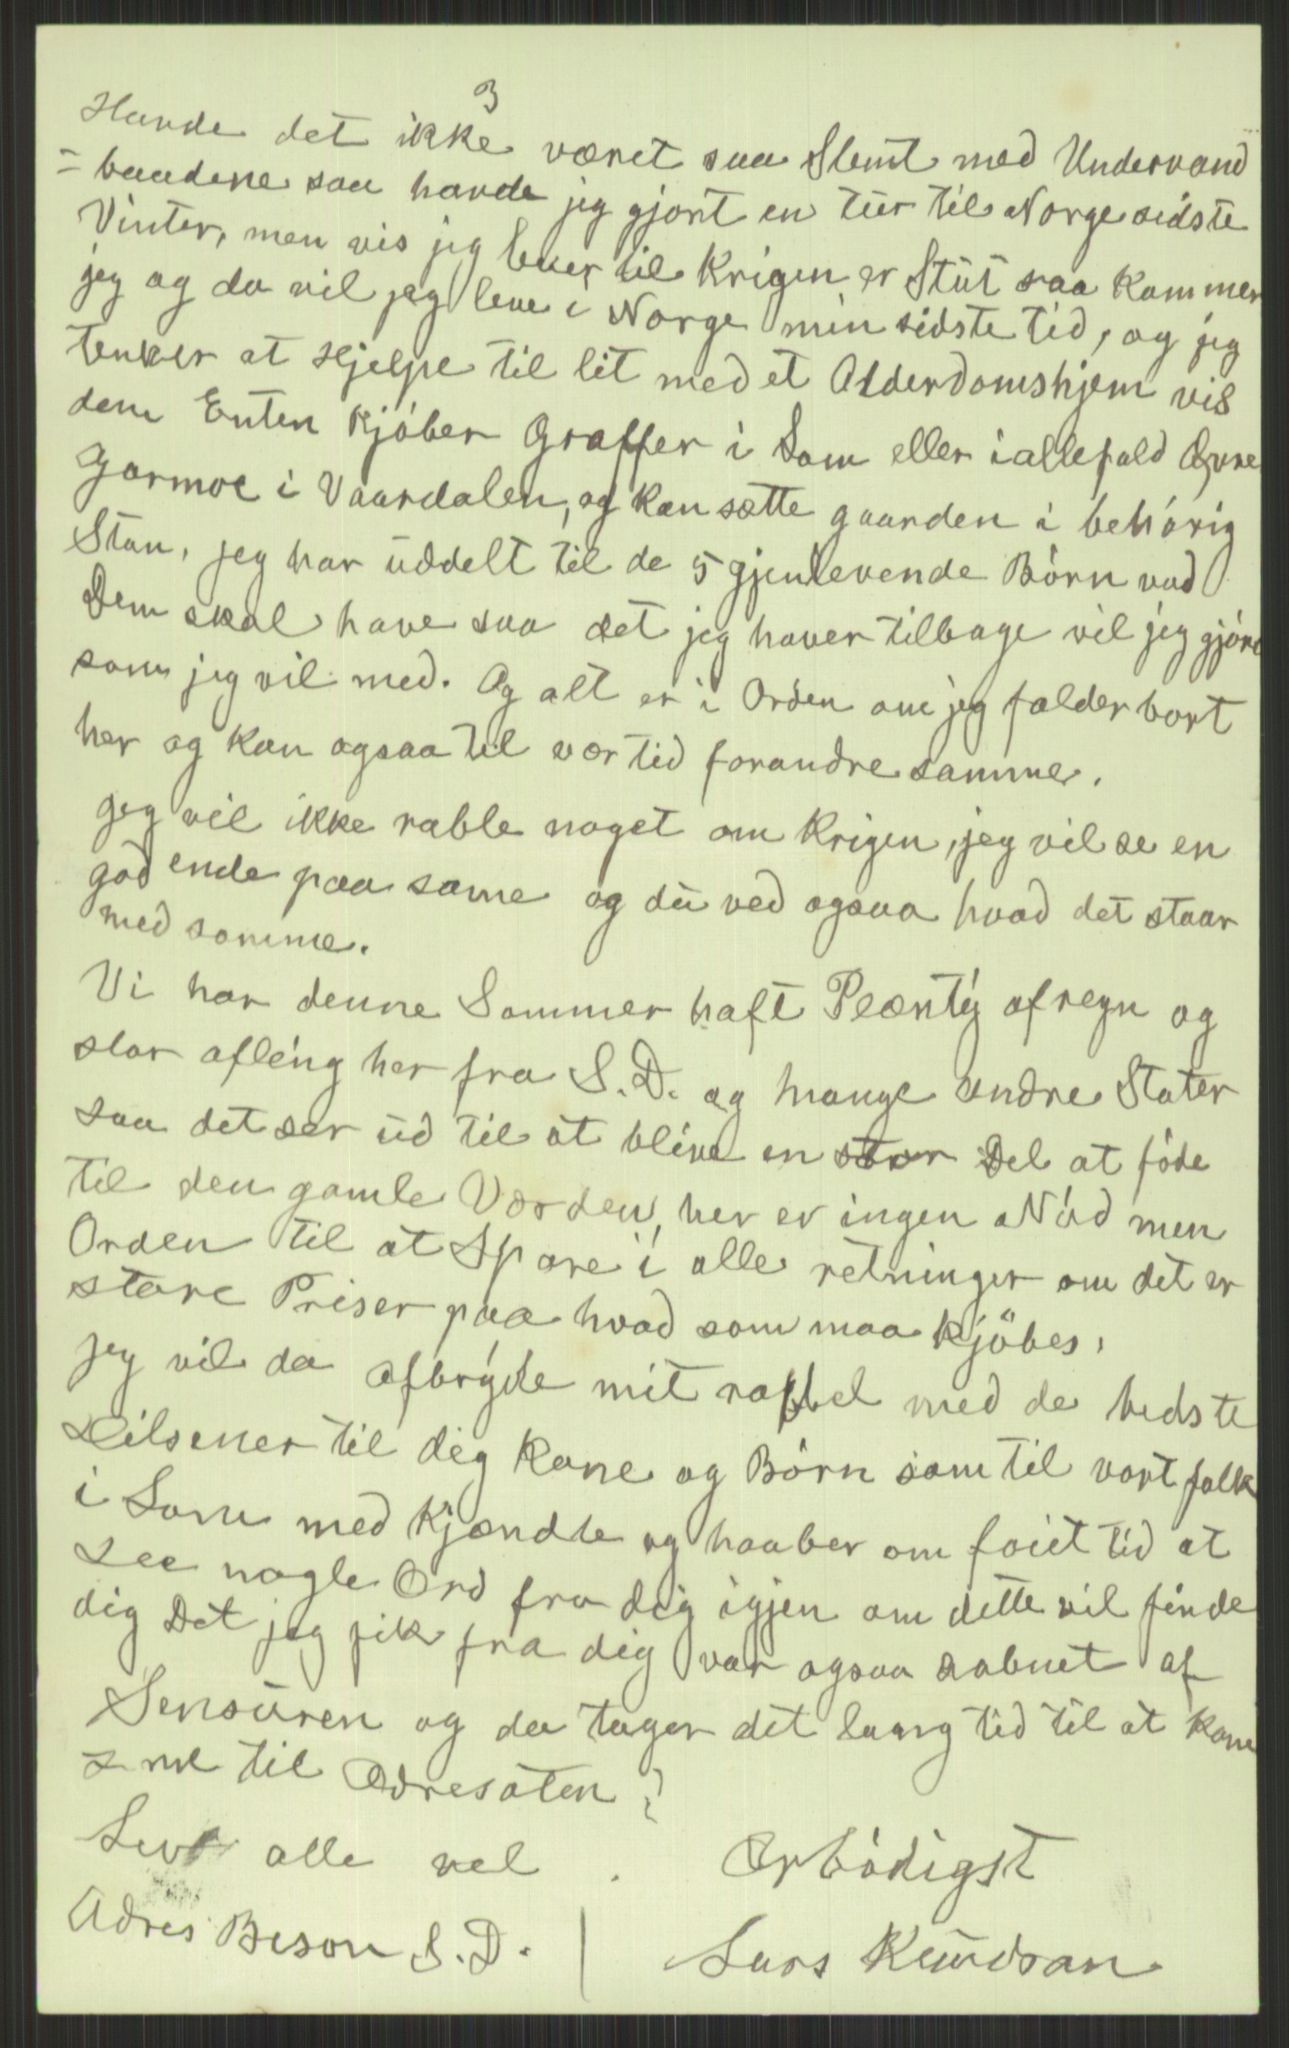 3
Havde det ikke været saa Slemt med Undervand
=baadene saa havde jeg gjort en tür til Norge sidste
Vinter, men vis jeg lever til Krigen er Slüt saa kommer
jeg og da vil jeg leve i Norge min sidste tid, og jeg
tenker at Hjelpe til lit med et Alderdomshjem vis
dem Enten Kjöber Graffer i Lom eller iallefald Øvre
Garmoe i Vaardalen, og kan sætte gaarden i behörig
Stan, jeg har uddelt til de 5 gjenlevende Börn vad
Dem skal have saa det jeg haver tilbage vil jeg gjöre
som jeg vil med. Og alt er i Orden om jeg falder bort
her og kan ogsaa til vær tid forandre samme.
jeg vil ikke rable noget om Krigen, jeg vil se en
god ende paa same og dü ved ogsaa hvad det staar
med samme.
Vi har denne Sommer haft Plænty af regn og
stor afling her fra S.D. og mange andre Stater
saa det ser üd til at blive en stor Del at föde
til den gamle Værden, her er ingen Nöd men
Orden til at Spare i alle retninger om det er
store Priser paa hvad som maa kjöbes,
jeg vil da afbryde mit rabbel med de bedste
Hilsener til dig Kone og Börn som til vort folk
i Lom med Kjændte og haaber om föiet tid at
see nogle Ord fra dig igjen om dette vil finde
dig Det jeg fik fra dig var ogsaa aabnet af
Sensüren og da tager det laang tid til at kome
til Adresaten?
Lev alle vel. Erbödigst
Adres Bison S.D. | Lars Knüdsan